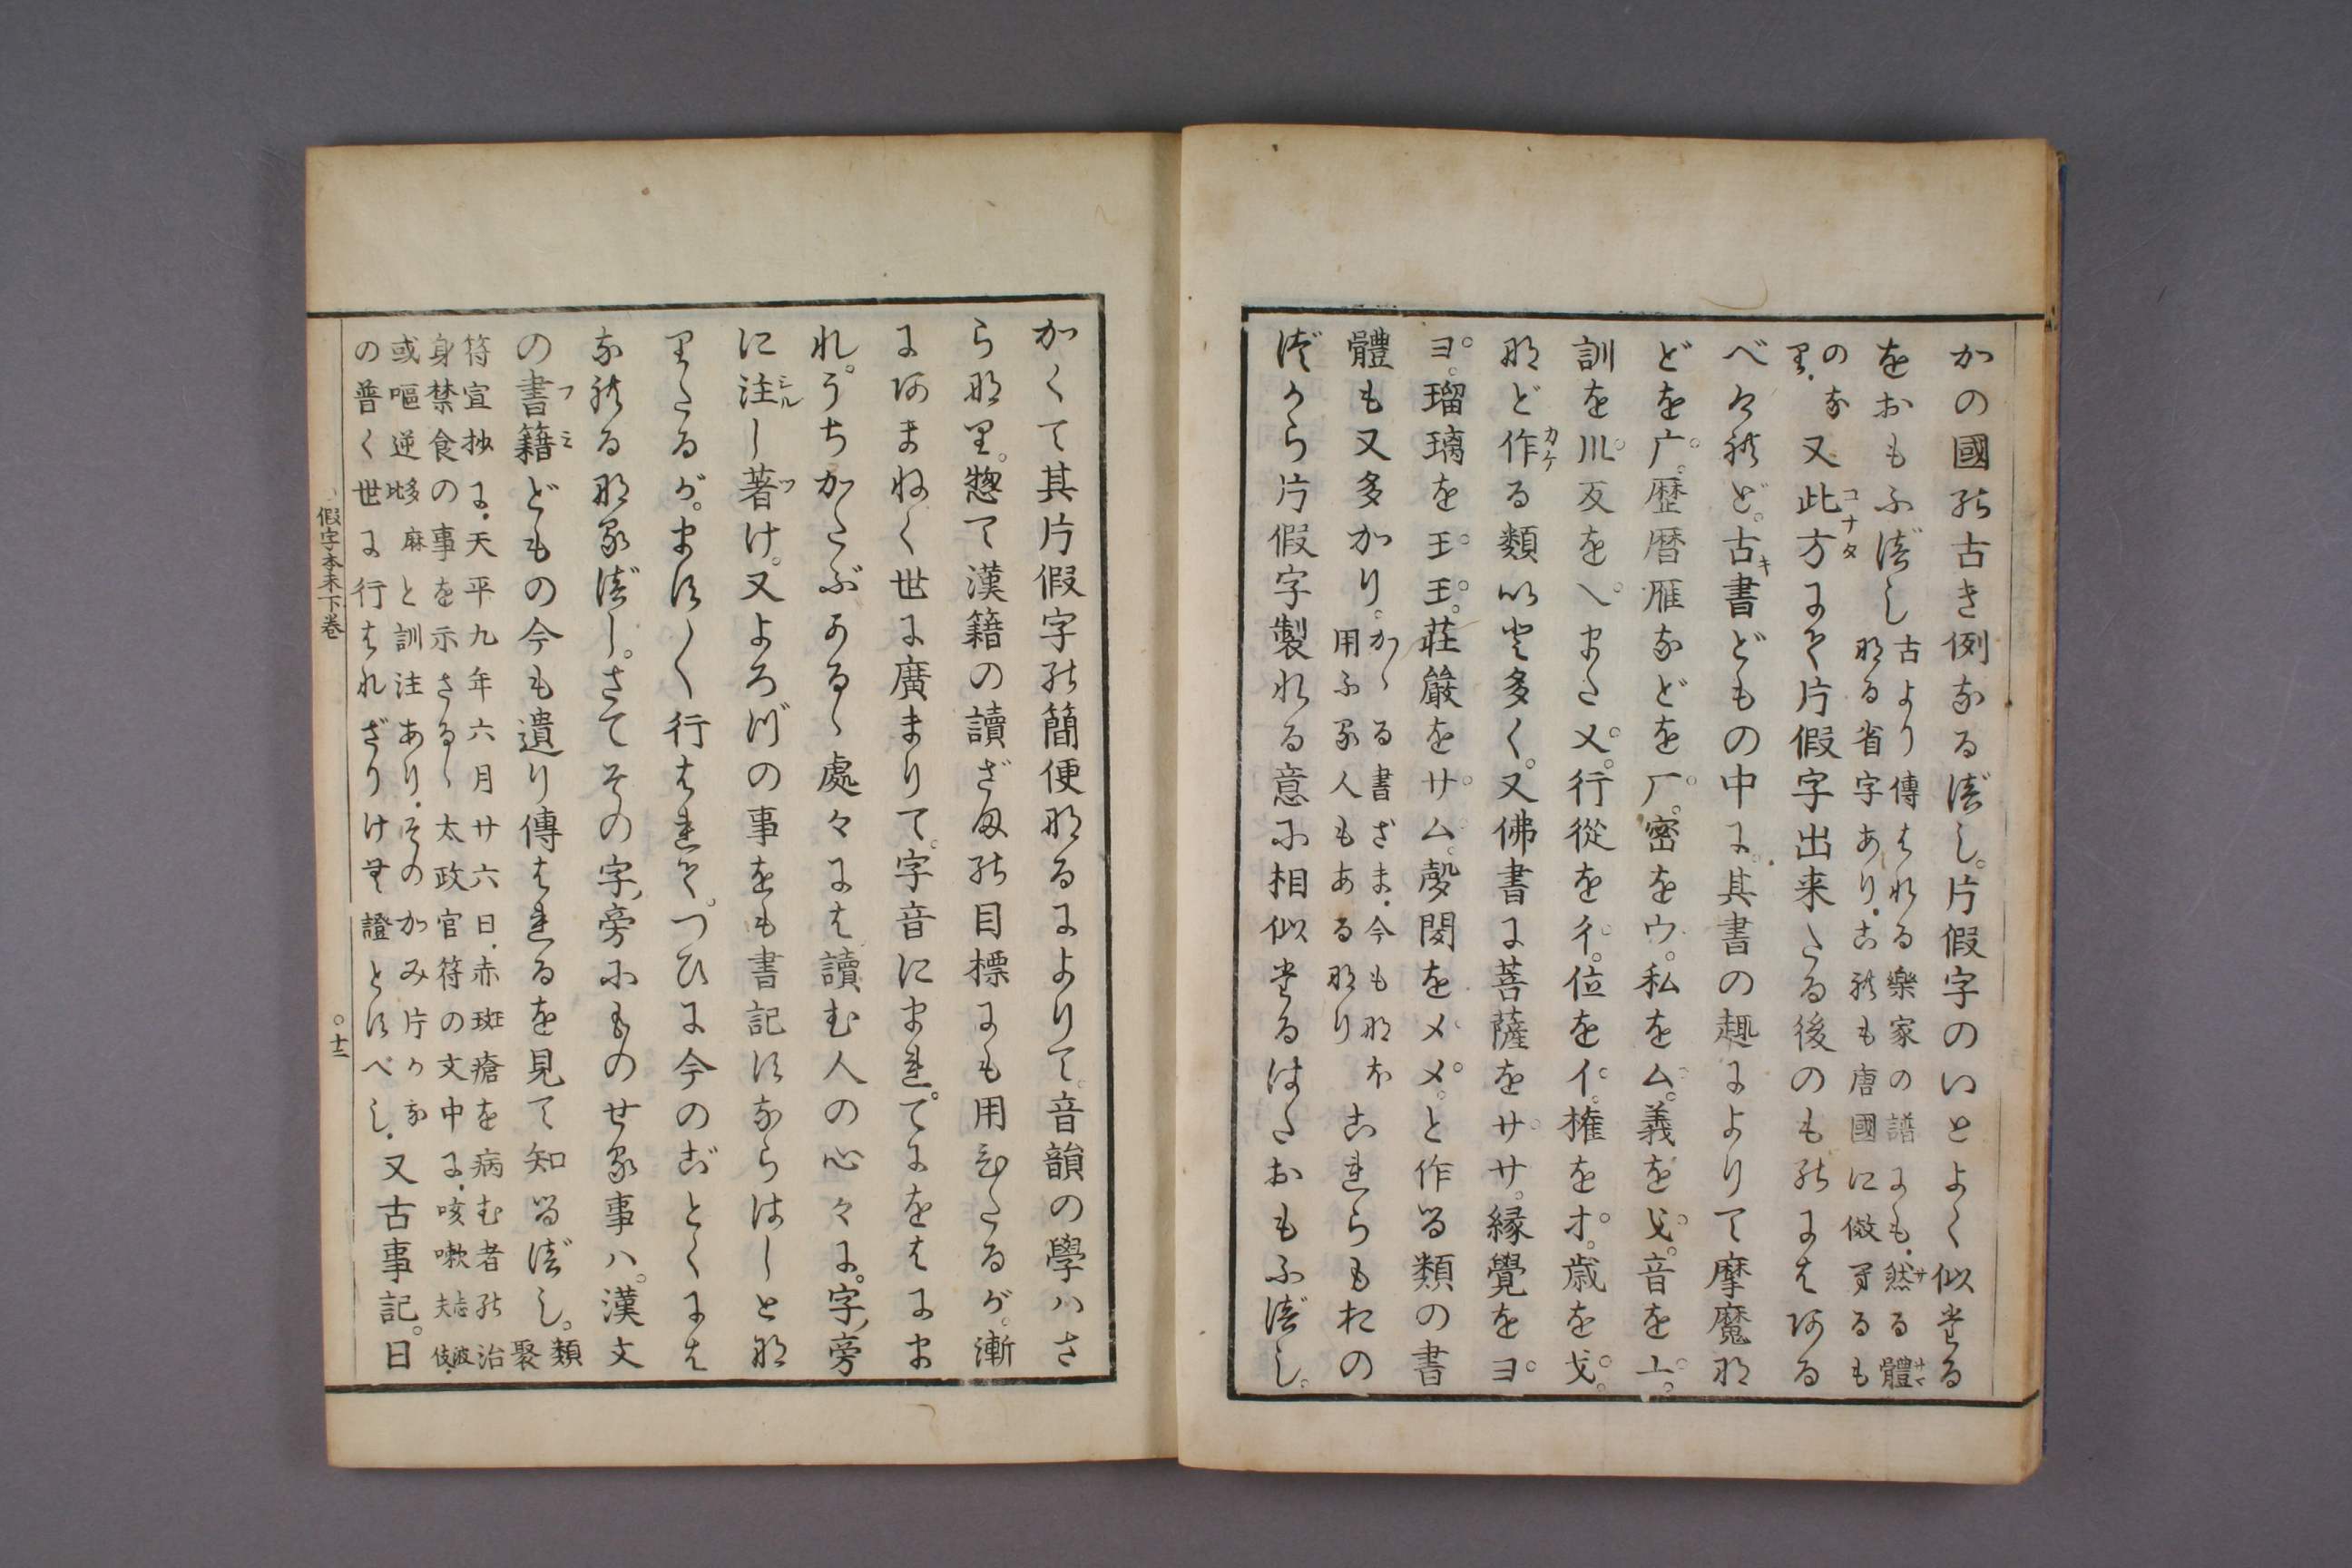 かの國の古き例なる法し。片假字のいとよく似たる
をおもふ法し
古より傳はれる樂家の譜にも、然る體
なる省字あり、これも唐國に倣へるも
のな
り、
又此方にて片假字出来たる後のものにはある
べけれど。古書どもの中に、其書の趣によりて摩魔な
どを广。歴暦雁などを厂。密をウ。私をム。義を㐅。音を亠。
訓を川反を乀また又。行從を彳。位をイ。権をオ。歳を戈。
など作る類いと多く。又佛書に菩薩をササ。縁覺をヨ
ヨ。瑠璃を王王。荘嚴をサム。聲聞をメメ。と作る類の書
體も又多かり。
かゝる書ざま、今もなほ
用ふる人もあるなり
これらもおの
づから片假字製れる意に相似たるはたおもふべし。
かくて其片假字の簡便なるによりて。音韻の學ハさ
らなり。惣て漢籍の讀ざまの目標にも用ひたるが。漸
にあまねく世に廣まりて。字音にまれ。てにをはにま
れ。うちかたぶあるゝ處々には讀む人の心々に。字旁
に注し著け。又よろづの事をも書記すならはしとな
りたるが。ますく行はれて。つひに今のごとくには
なれるなるべし。さてその字旁にものせる事ハ。漢文
の書籍どもの今も遺り傳はれるを見て知るべし。
類
聚
符宣抄に、天平九年六月廿六日、赤斑瘡を病む者の治
身禁食の事を示さるゝ太政官符の文中に、咳嗽志波夫伎、
或嘔逆多麻比と訓注あり、そのかみ片かな
の普く世に行はれざりけむ證とすべし、
又古事記。日
假字本末下巻
○十二